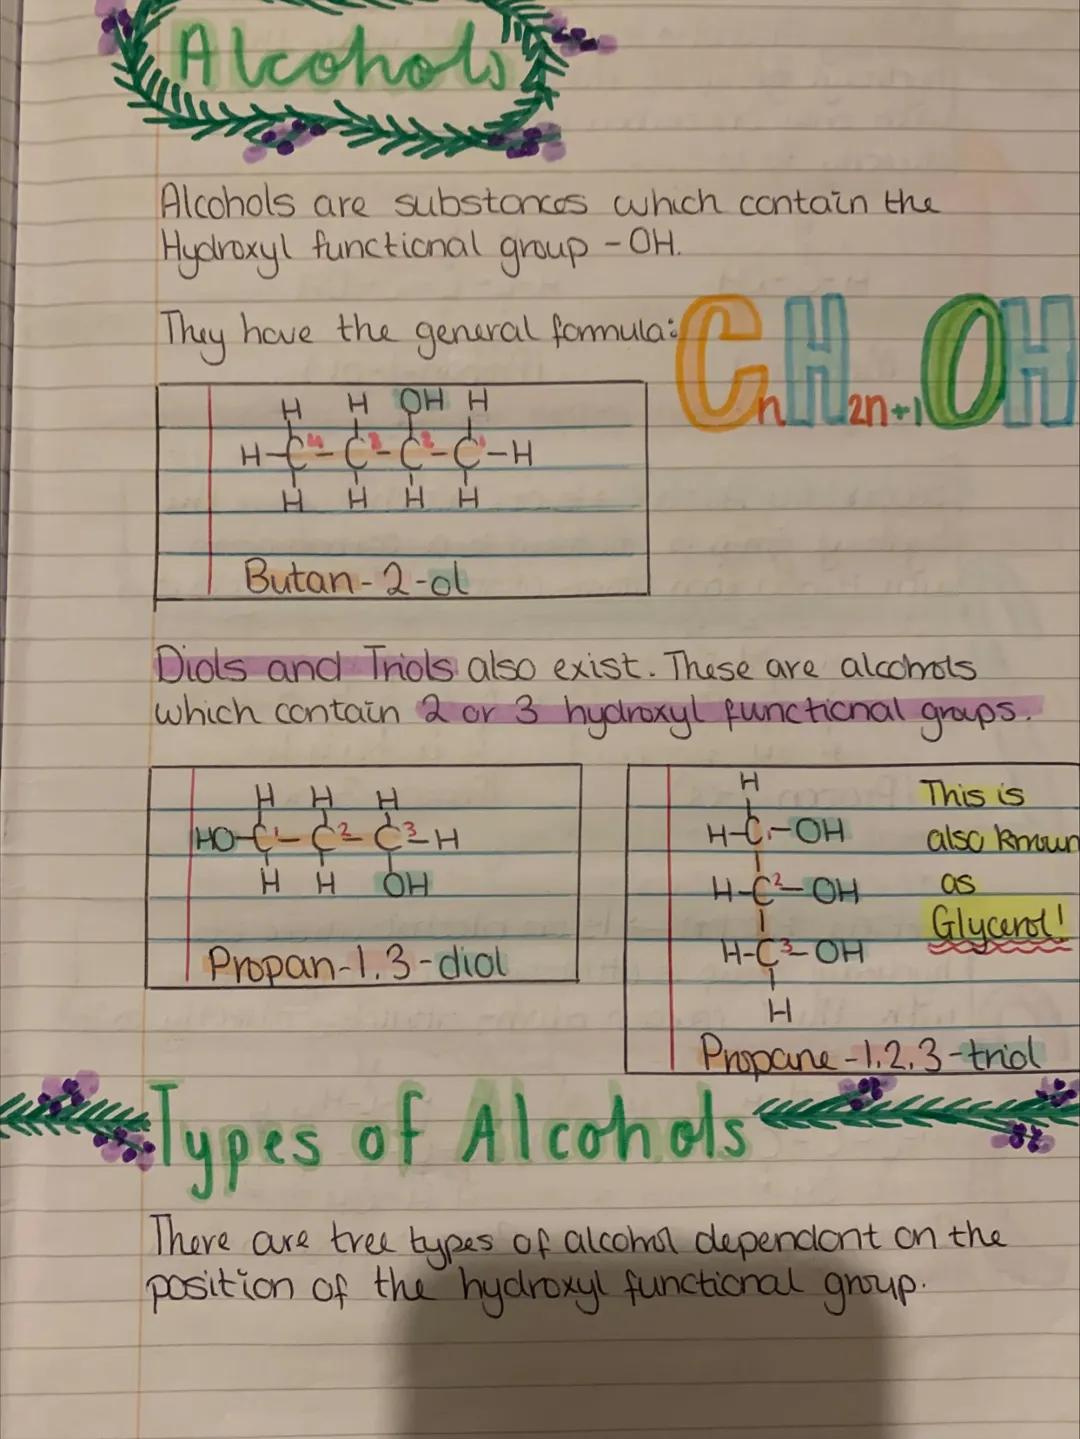 Alcohols
Alcohols are substances which contain the
Hydroxyl functional group -OH.
They have the general formula: CnH2n+1OH
H H OH H
H-C4-C3-C2-C1-H
H H H H
Butan-2-ol
Diols and Triols also exist. These are alcohols
which contain 2 or 3 hydroxyl functional groups.
H H H
HO-C1-C2-C3-H
H H OH
Propan-1,3-diol
H
H-C1-OH
H-C2-OH
H-C3-OH
H
Propane-1,2,3-triol
This is
also known
as
Glycerol!
Types of Alcohols
There are tree types of alcohol dependant on the
position of the hydroxyl functional group.